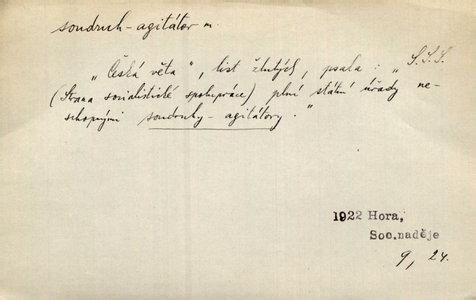 soudruh-agitátor m.
„Česká věta“, list žlutých, psala: „S.S.S.
(Strana socialistické spolupráce) plní státní úřady ne-
schopnými soudruhy-agitátory.“
1922 Hora,
Soc.naděje
9, 24.